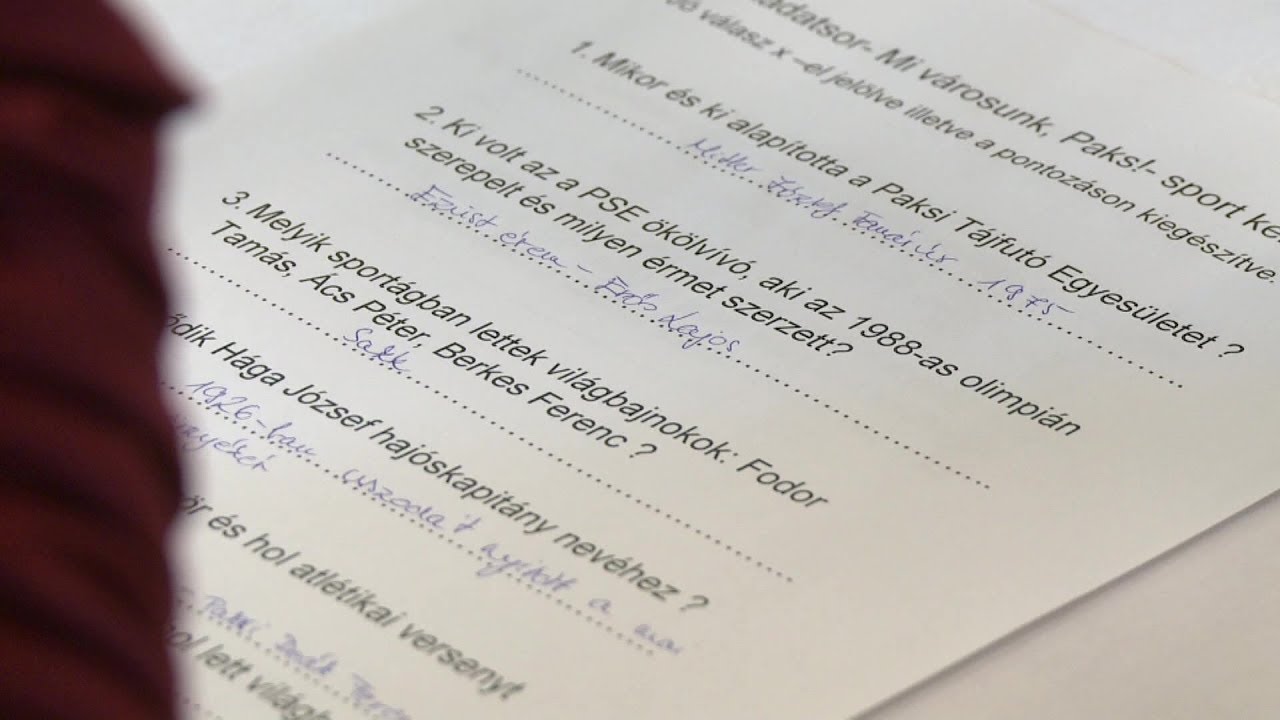 adatsor- Mi városunk, Paks!- sport ké
ő válasz x –el jelölve illetve a pontozáson kiegészítve.
1. Mikor és ki alapította a Paksi Tájfutó Egyesületet ?
József Tamási 1975
2. Ki volt az a PSE ökölvívó, aki az 1988-as olimpián
szerepelt és milyen érmet szerzett?
Ezüst érem - Erős Lajos
3. Melyik sportágban lettek világbajnokok: Fodor
Tamás, Ács Péter, Berkes Ferenc ?
Sakk
ődik Hága József hajóskapitány nevéhez ?
1926-ban uszodát nyitott a mai
ör és hol atlétikai versenyt
Deák Feren
ol lett világb